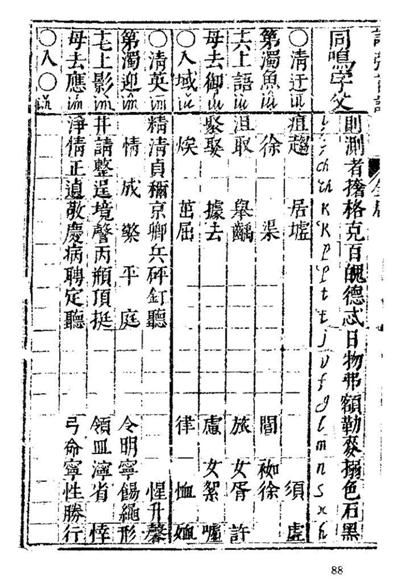 則測者撦格克百魄德忒日物弗額勒麥搦色石黑
同鳴字父 ç ch k p t j v f g l m n s x h
○清迂 iu 疽趨 居墟 須 虛
第濁魚 iû 徐 渠 閭 袽徐
六上語 沮取 舉齲 旅 女胥 許
母去御 聚娶 據去 慮 女絮 噓
○入域 焌 茁屈 律 恤
○清英 im 精清貞稱京卿兵砰釘聽 惺升馨
第濁迎 情 成 擎 平 庭 令明寧餳繩形
七上影 井請整逞境謦丙頩頂挺 領皿濘省 悻
母去應 淨倩正遉敬慶病聘定聽 命甯性勝行
○入○
88